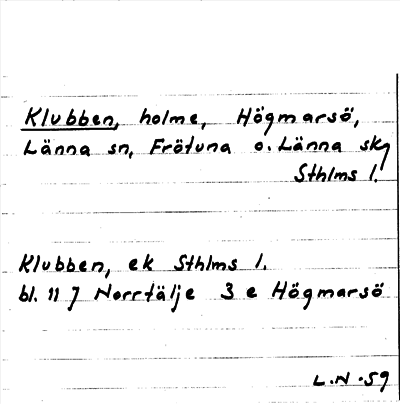 Klubben, holme, Högmarsö,
Länna sn, Frötuna o. Länna skg
Sthlms l.
Klubben, ek Sthlms l.
bl. 11 J Norrtälje 3 e Högmarsö
L.N. 59